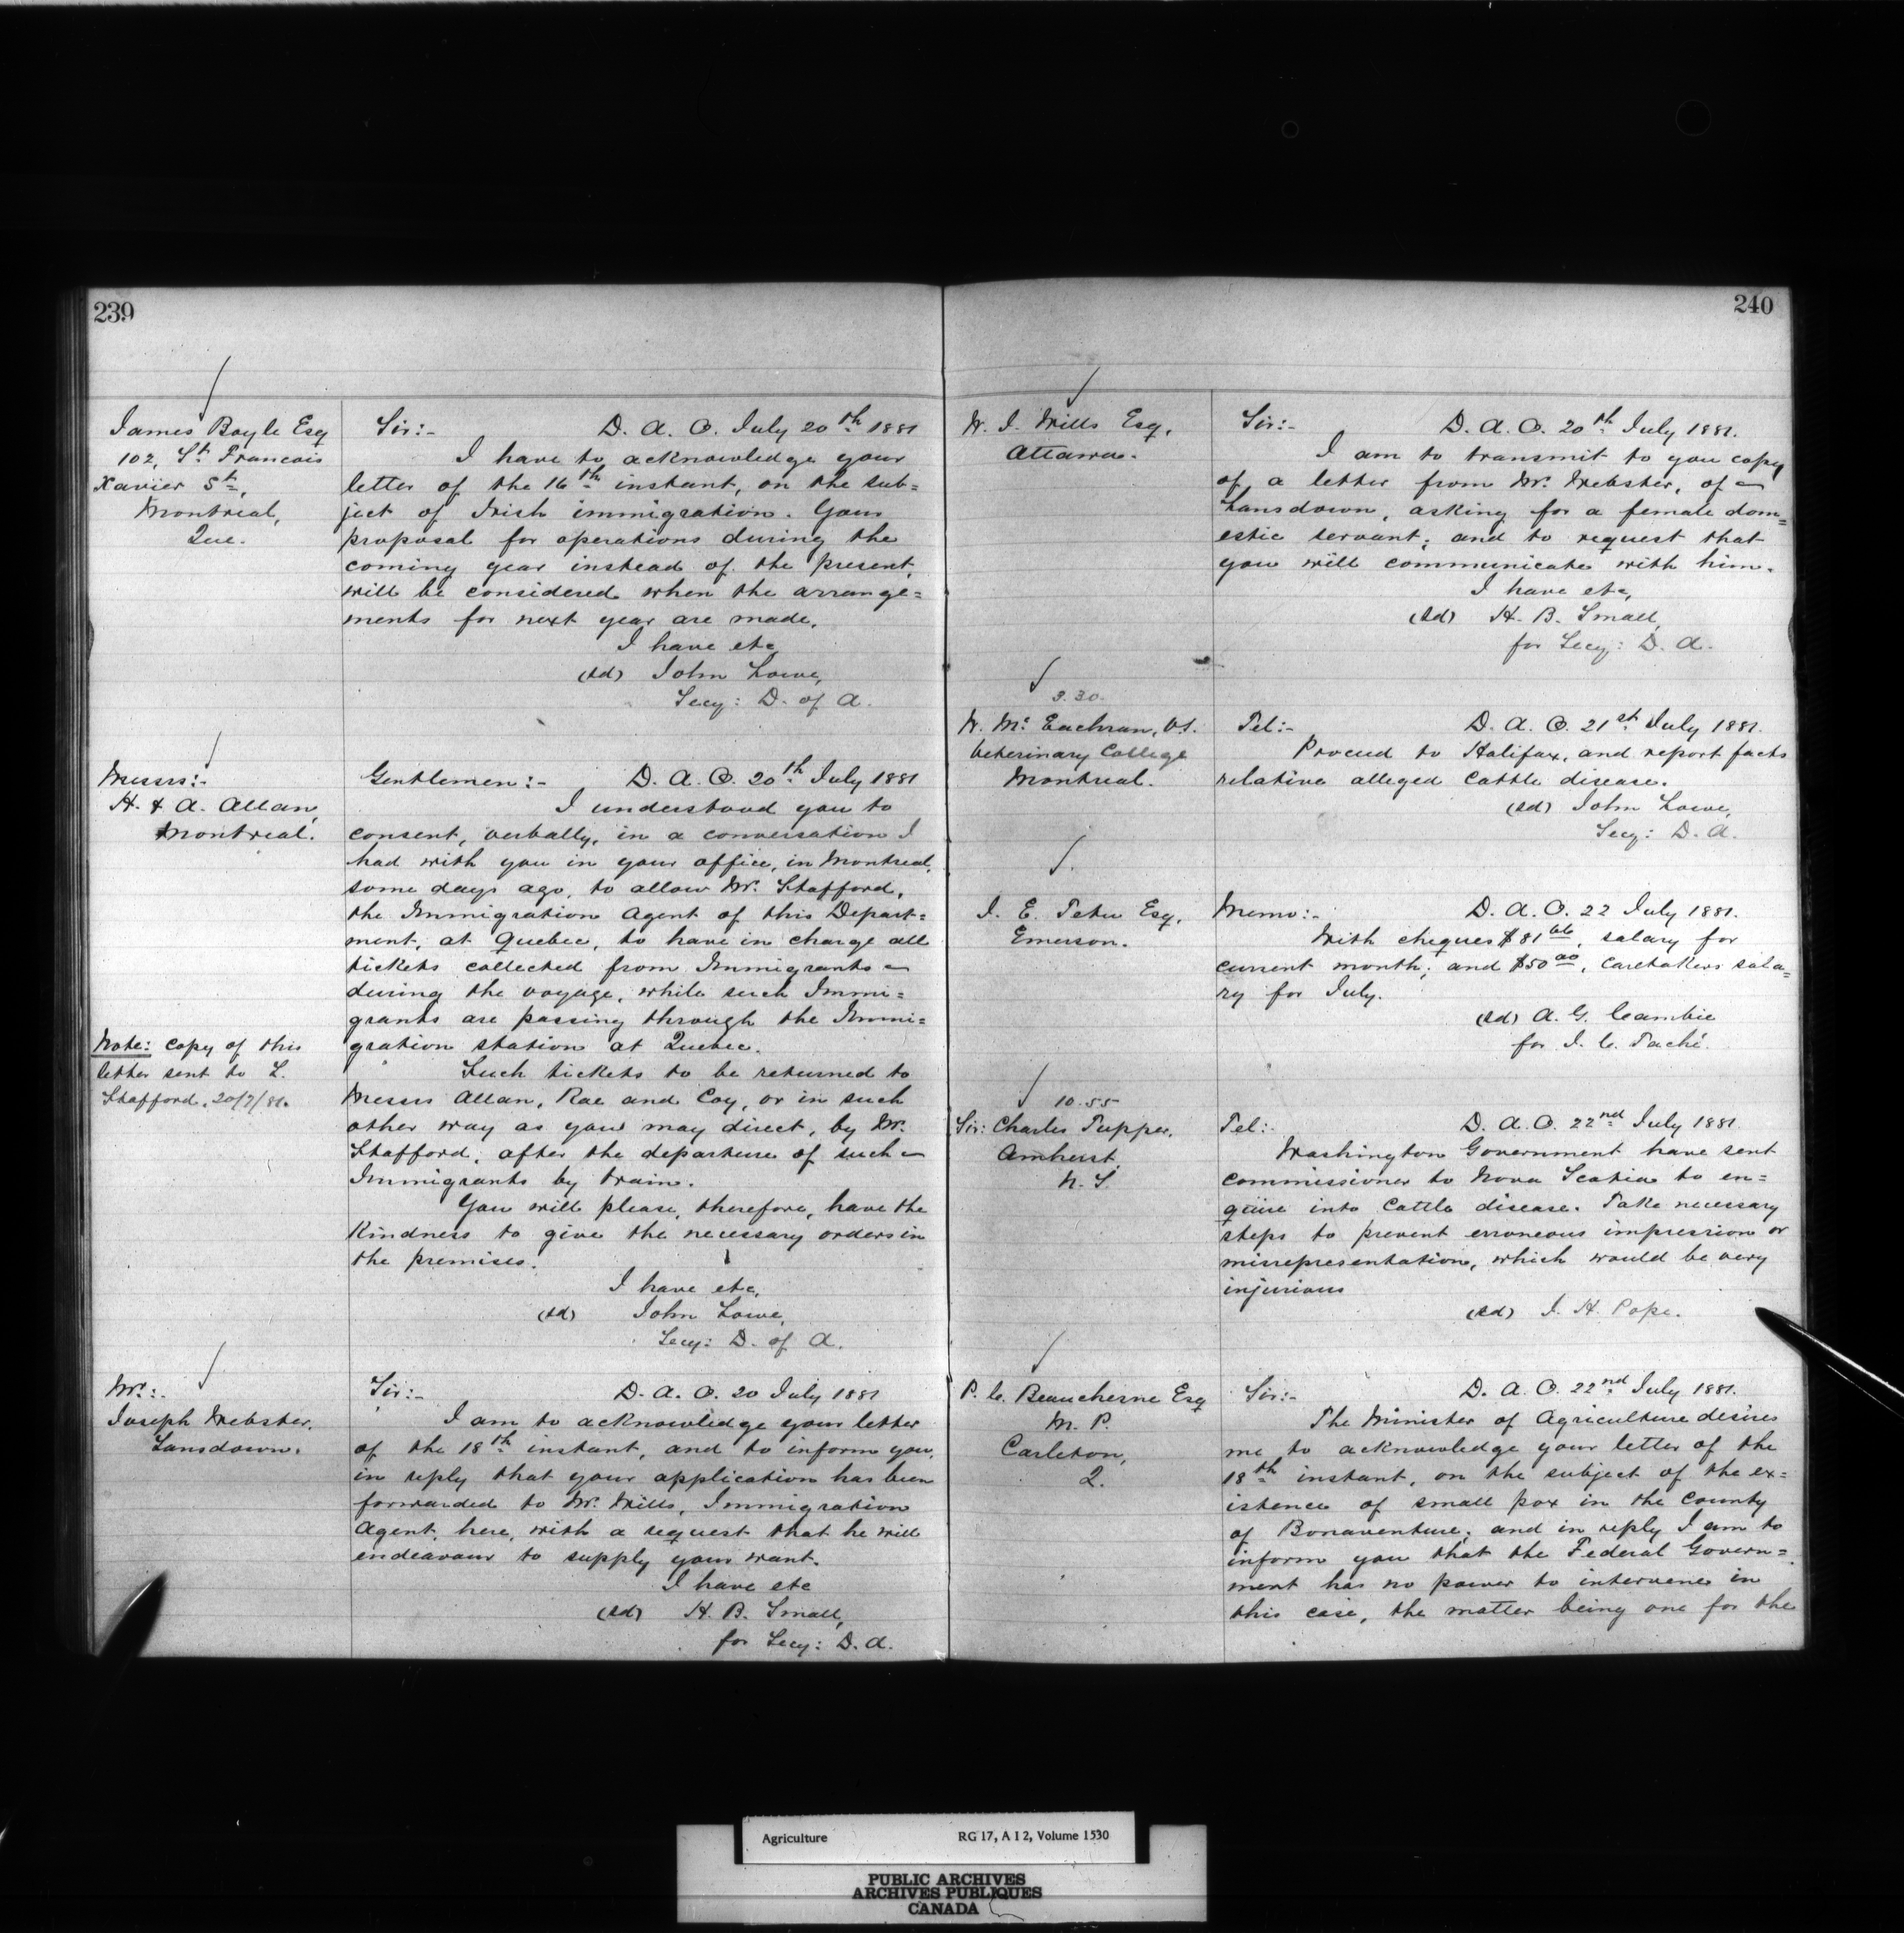 239
James Boyle Esq
102, St Francois
Xavier St,
Montreal,
Que.
Sir:- D. A. O. July 20th 1881
I have to acknowledge your
letter of the 16th instant, on the sub=
ject of Irish immigration. Your
proposal for operations during the
coming year instead of the present,
will be considered when the arrange=
ments for next year are made.
I have etc
(sd) John Lowe,
Secy: D. of A.
Messrs:-
H. & A. Allan,
Montreal.
Gentlemen:- D. A. O. 20th July 1881
I understood you to
consent, verbally, in a conversation I
had with you in your office, in Montreal,
some days ago, to allow Mr. Stafford,
the Immigration Agent of this Depart=
ment, at Quebec, to have in charge all
tickets collected from Immigrants
during the voyage, while such Immi=
grants are passing through the Immi=
gration station at Quebec.
Note: Copy of this
letter sent to L.
Stafford, 20/7/81.
Such tickets to be returned to
Messrs Allan, Rae and Coy, or in such
other way as you may direct, by Mr.
Stafford, after the departure of such
Immigrants by train.
You will please, therefore, have the
kindness to give the necessary orders in
the premises.
I have etc,
(sd) John Lowe,
Secy: D. of A.
Mr:-
Joseph Webster,
Lansdown.
Sir:- D. A. O. 20 July 1881
I am to acknowledge your letter
of the 18th instant, and to inform you,
in reply that your application has been
forwarded to Mr. Wills, Immigration
Agent, here, with a request that he will
endeavour to supply your want.
I have etc
(sd) H. B. Small,
for Secy: D. A.
240
W. J. Wills Esq,
Ottawa.
Sir:- D. A. O. 20th July 1881.
I am to transmit to you copy
of a letter from Mr. Webster, of
Lansdown, asking for a female dom=
estic servant; and to request that
you will communicate with him.
I have etc,
(sd) H. B. Small,
for Secy: D. A.
3.30.
Mc Eachran, V.S.
Veterinary College
Montreal.
Tel:- D. A. O. 21st July 1881.
Proceed to Halifax, and report facts
relative alleged Cattle disease.
(sd) John Lowe,
Secy: D. A.
J. E. Tetu Esq,
Emerson.
Memo:- D. A. O. 22 July 1881.
With cheques $81 66, salary for
current month; and $50 00, Caretakers sala=
ry for July.
(sd) A. G. Cambie
for J. C. Taché.
10.55
Sir: Charles Tupper,
Amherst,
N. S.
Tel:- D. A. O. 22nd July 1881.
Washington Government have sent
Commissioner to Nova Scotia to en=
quire into Cattle disease. Take necessary
steps to prevent erroneous impression or
misrepresentation, which would be very
injurious
(sd) J. H. Pope.
P. C. Beauchesne Esq
M. P.
Carleton,
Q.
Sir:- D. A. O. 22nd July 1881.
The Minister of Agriculture desires
me to acknowledge your letter of the
18th instant, on the subject of the ex=
istence of small pox in the County
of Bonaventure; and in reply I am to
inform you that the Federal Govern=
ment has no power to intervene in
this case, the matter being one for the
Agriculture RG 17, A I 2, Volume 1530
PUBLIC ARCHIVES
ARCHIVES PUBLIQUES
CANADA